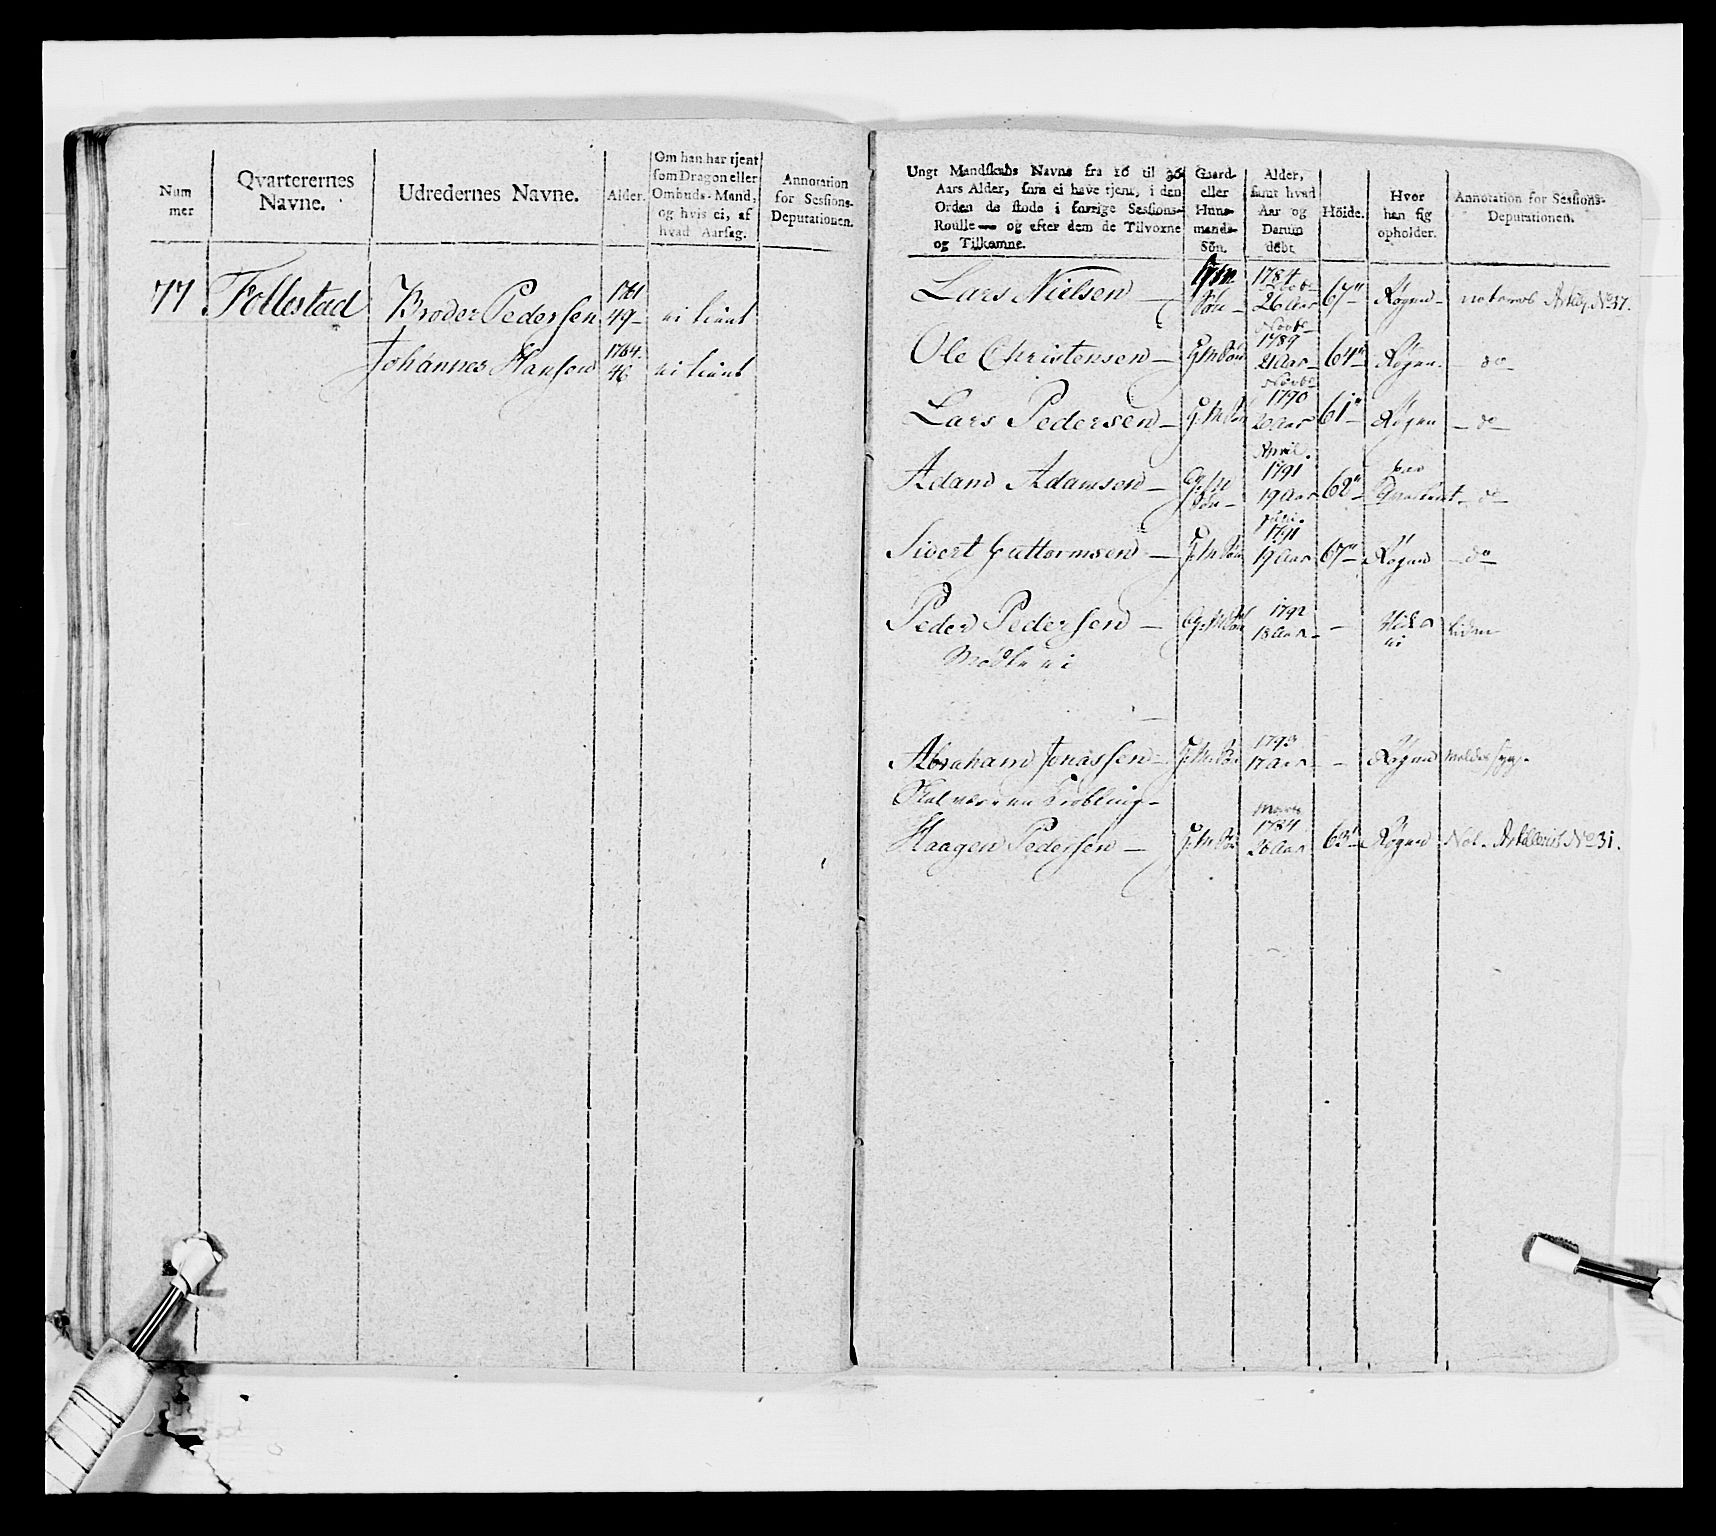 Num
mer
Qvarterernes
Navne.
Udredernes Navne.
Alder.
Om han har tjent
som Dragon eller
Ombuds-Mand,
og hvis ei, af
hvad Aarsag.
Annotation
for Sessions-
Deputationen.
77 Follestad Broder Pedersen 1761 49- ei tient
Johannes Hansen 1764. 46 ei tient
Ungt Mandskabs Navne fra 16 til 36
Aars Alder, som ei have tjent, i den
Orden de stode i forrige Sessions-
Roulle — og efter dem de Tilvoxne
og Tilkomne.
Gaard-
eller
Huus-
mands-
Søn.
Alder,
samt hvad
Aar og
Datum
debt
Höide.
Hvor
han sig
opholder.
Annotation for Sessions-
Deputationen.
1784
Lars Nielsen — Søn — 26 Aar 67" Røgen - noteres No 37.
Novbr
1789
Ole Christensen — G. M Søn 21 Aar 64" Røgen - do
Novbr
1790
Lars Pedersen — G. M Søn 20 Aar 61" Røgen - do
April
1791
Adam Adamsen — Søn - 19 Aar 68" - do
1791
Sivert Guttormsen — G. M Søn 19 Aar 67" Røgen - do
1792
Peder Pedersen — G. M Søn 18 Aar -
Mødte ei
1793
Abraham Jonassen — G. M Søn 17 Aar - Røgen
Marts
1784
Haagen Pedersen — G. M Søn 26 Aar 63" Røgen Not. No 31.